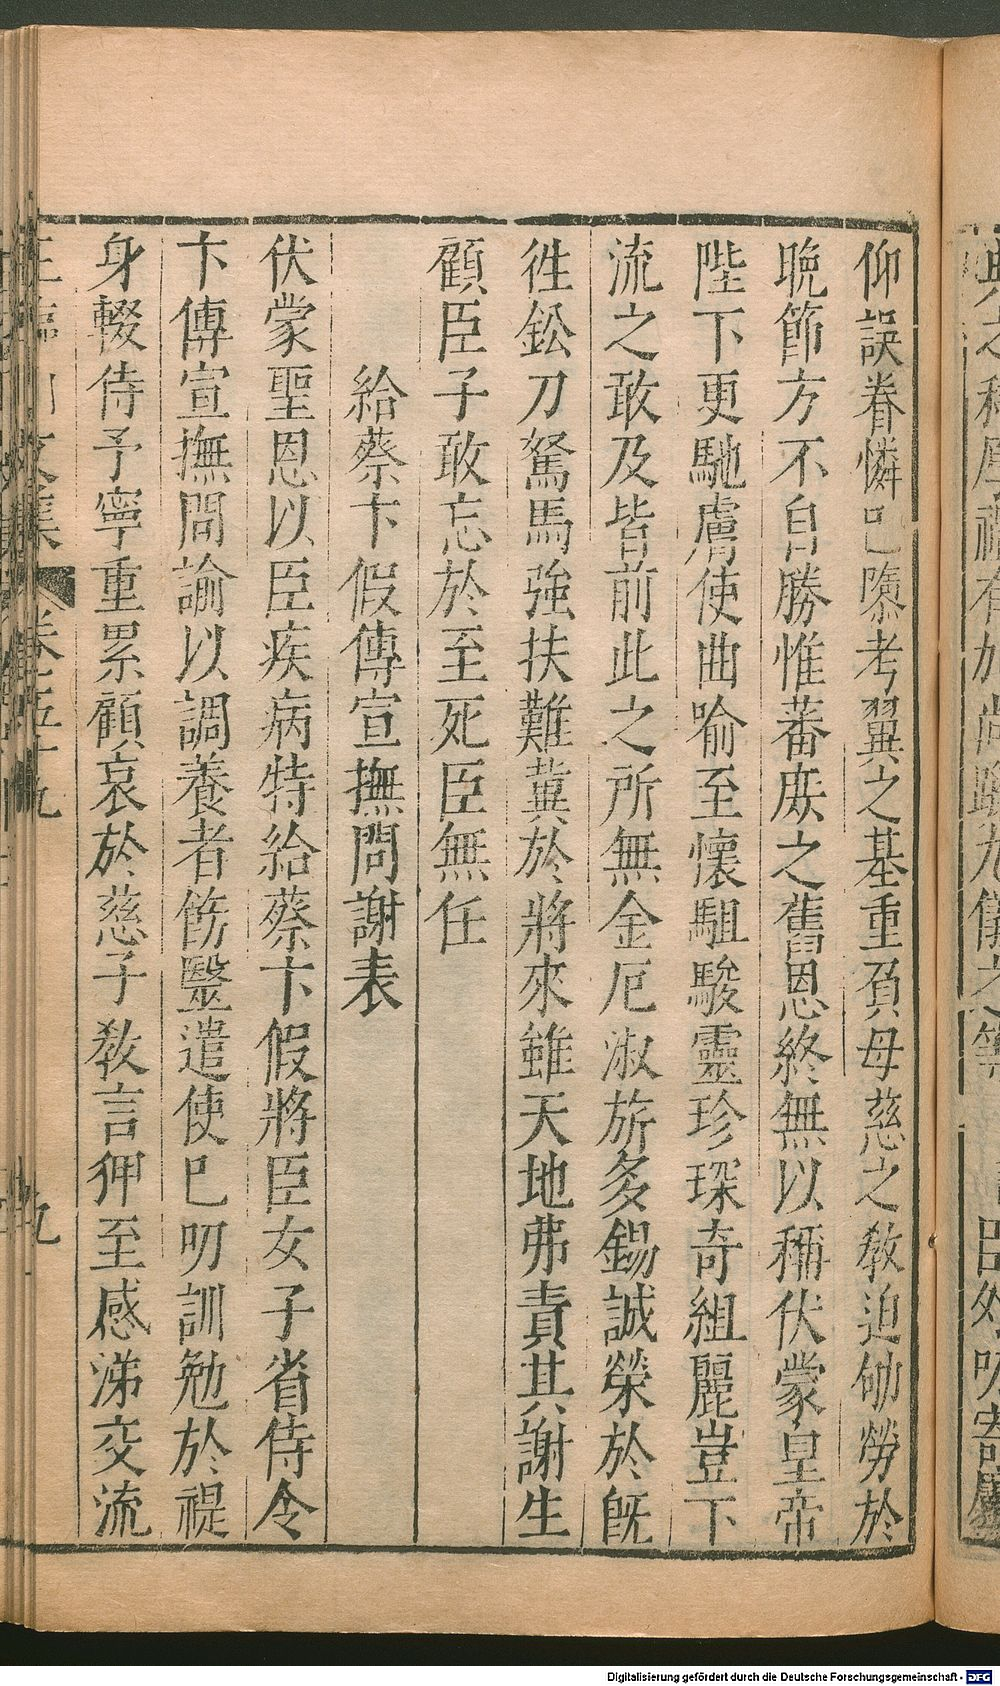 仰誤眷憐已隳考翼之基重負母慈之敎迫劬勞於
晚節方不自勝惟蕃庶之舊恩終無以稱伏蒙皇帝
陛下更馳膚使曲喻至懷駔駿靈珍琛奇組麗豈下
流之敢及皆前此之所無金厄淑旂多錫誠榮於旣
徃鈆刀駑馬強扶難冀於將來雖天地弗責其謝生
顧臣子敢忘於至死臣無任
給蔡卞假傳宣撫問謝表
伏蒙聖恩以臣疾病特給蔡卞假將臣女子省侍令
卞傳宣撫問諭以調養者飭毉遣使已叨訓勉於禔
身輟侍予寧重累顧哀於慈子敎言狎至感涕交流
文集
卷五十九
九
Digitalisierung gefördert durch die Deutsche Forschungsgemeinschaft - DFG